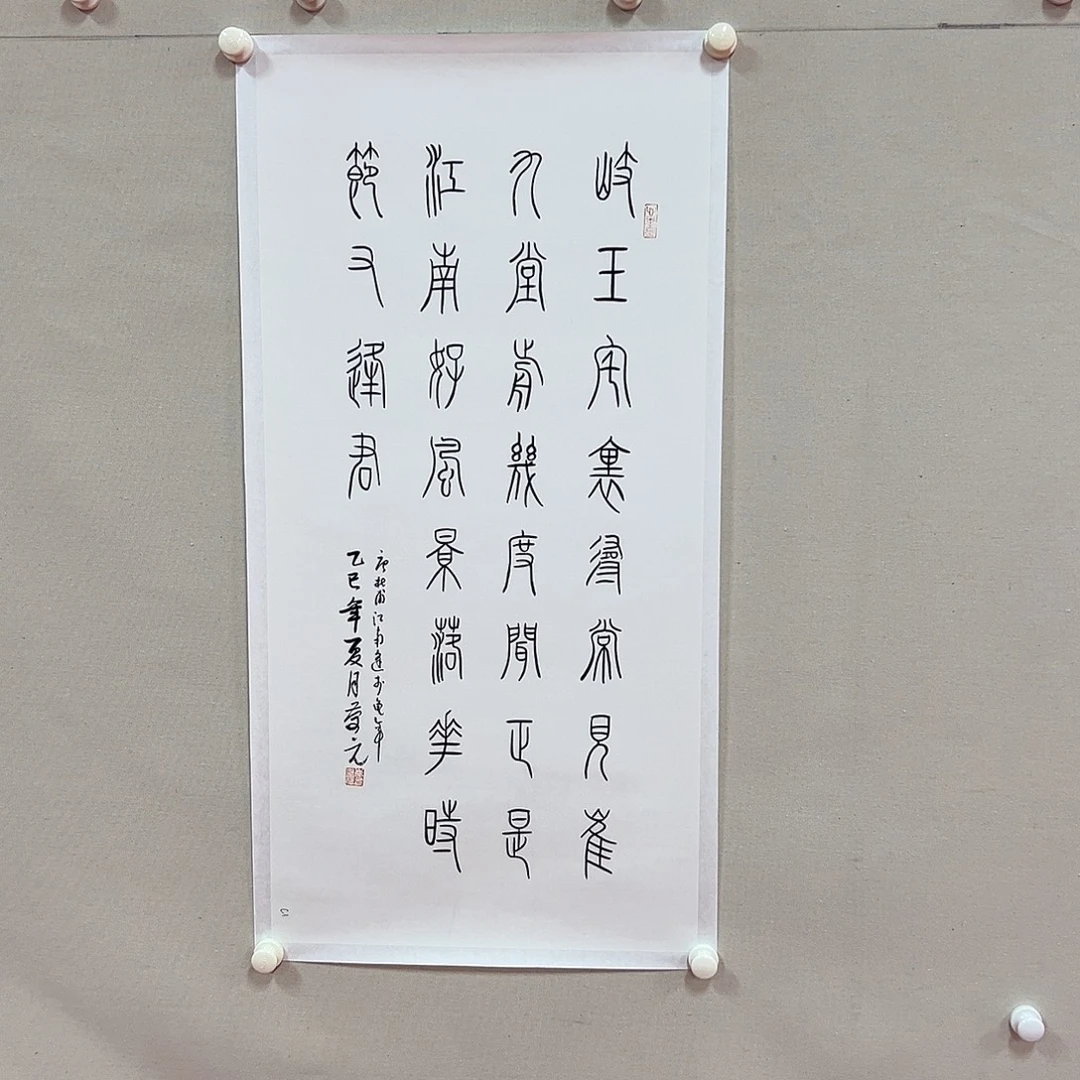 岐王宅裏尋常見崔
九堂前幾度聞正是
江南好風景落華時
節又逢君
唐杜甫江南逢李龜年
乙巳年夏月